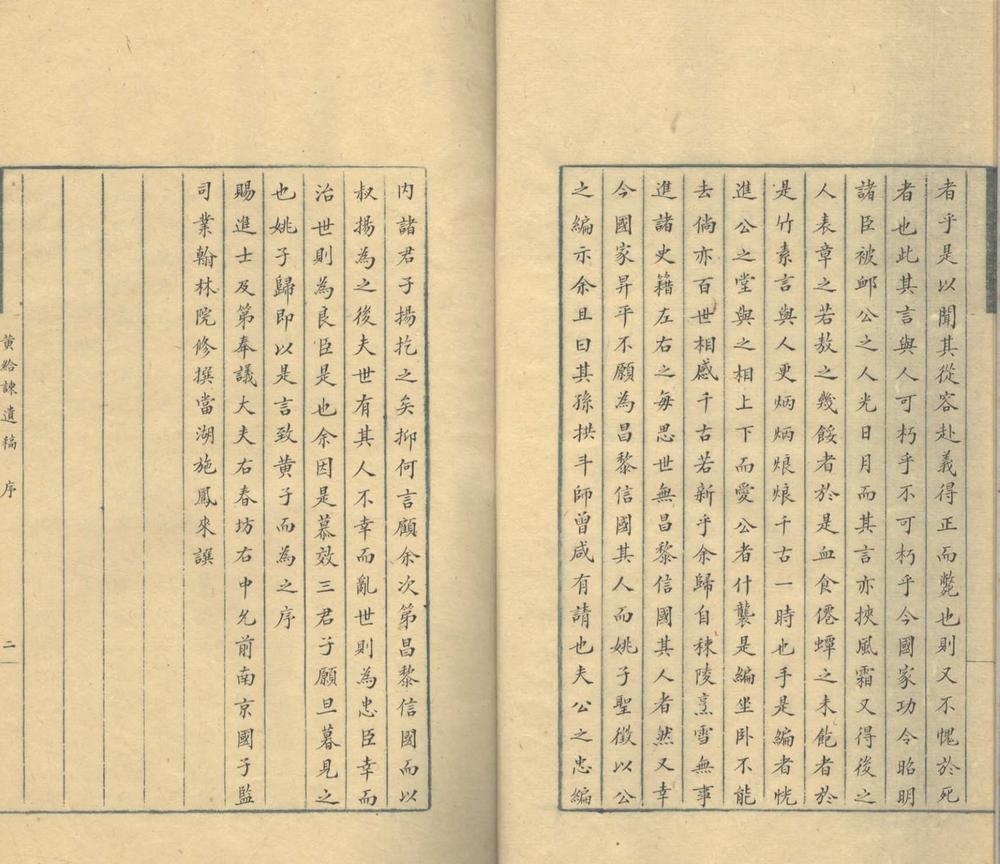 者乎是以聞其從容赴義得正而斃也則又不愧於死
者也此其言與人可朽乎不可朽乎今國家功令昭明
諸臣被邺公之人光日月而其言亦挾風霜又得後之
人表章之若敖之幾餒者於是血食僊蟫之未飽者於
是竹素言與人更炳炳烺烺千古一時也手是編者恍
進公之堂與之相上下而愛公者什襲是編坐卧不能
去倘亦百世相感千古若新乎余歸自秣陵烹雪無事
進諸史籍左右之每思世無昌黎信國其人者然又幸
今國家昇平不願為昌黎信國其人而姚子聖徵以公
之編示余且曰其孫拱斗師曾咸有請也夫公之忠編
内諸君子揚扢之矣抑何言顧余次第昌黎信國而以
叔揚為之後夫世有其人不幸而亂世則為忠臣幸而
治世則為良臣是也余因是慕效三君子願旦暮見之
也姚子歸即以是言致黄子而為之序
賜進士及第奉議大夫右春坊右中允前南京國子監
司業翰林院修撰當湖施鳳來譔
黄給諫遺稿 序 二